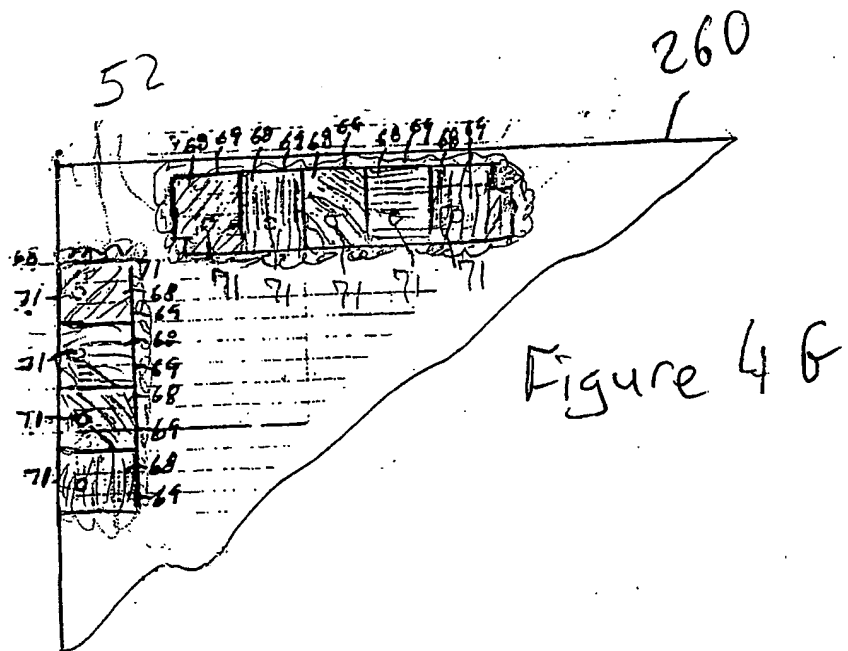 260
52
68 69 68 69 68 69 68 69 68 69
71 71 71 71 71
68 71
71 68
69
68
71 69
68
71 69
68
71 69
Figure 4 G